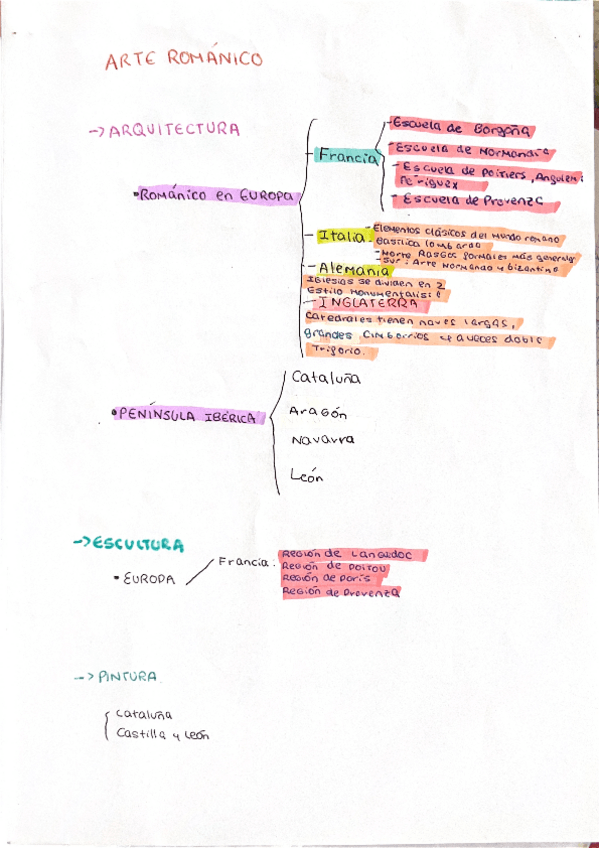 ARTE ROMÁNICO
->ARQUITECTURA
•ROMÁNICO en EUROPA
- Francia
-Escuela de Borgoña
-Escuela de Normandía
- Escuela de Poitiers, Angulem:
Periguex
- Escuela de Provenza
- Italia.
-Elementos clásicos del mundo romano
Basílica lombarda
-Norte Rasgos formales más generales
-Sur: Arte Normando y bizantino
- Alemania
Iglesias se dividen en 2
Estilo monumentalista
- INGLATERRA
Catedrales tienen naves largas,
grandes cimborrios y a veces doble
Triforio.
•PENÍNSULA IBÉRICA
Cataluña
Aragón
Navarra
León
->ESCULTURA
• EUROPA
Francia:
Región de Languedoc
Región de Poitou
Región de París
Región de Provenza
-->PINTURA
Cataluña
Castilla y León